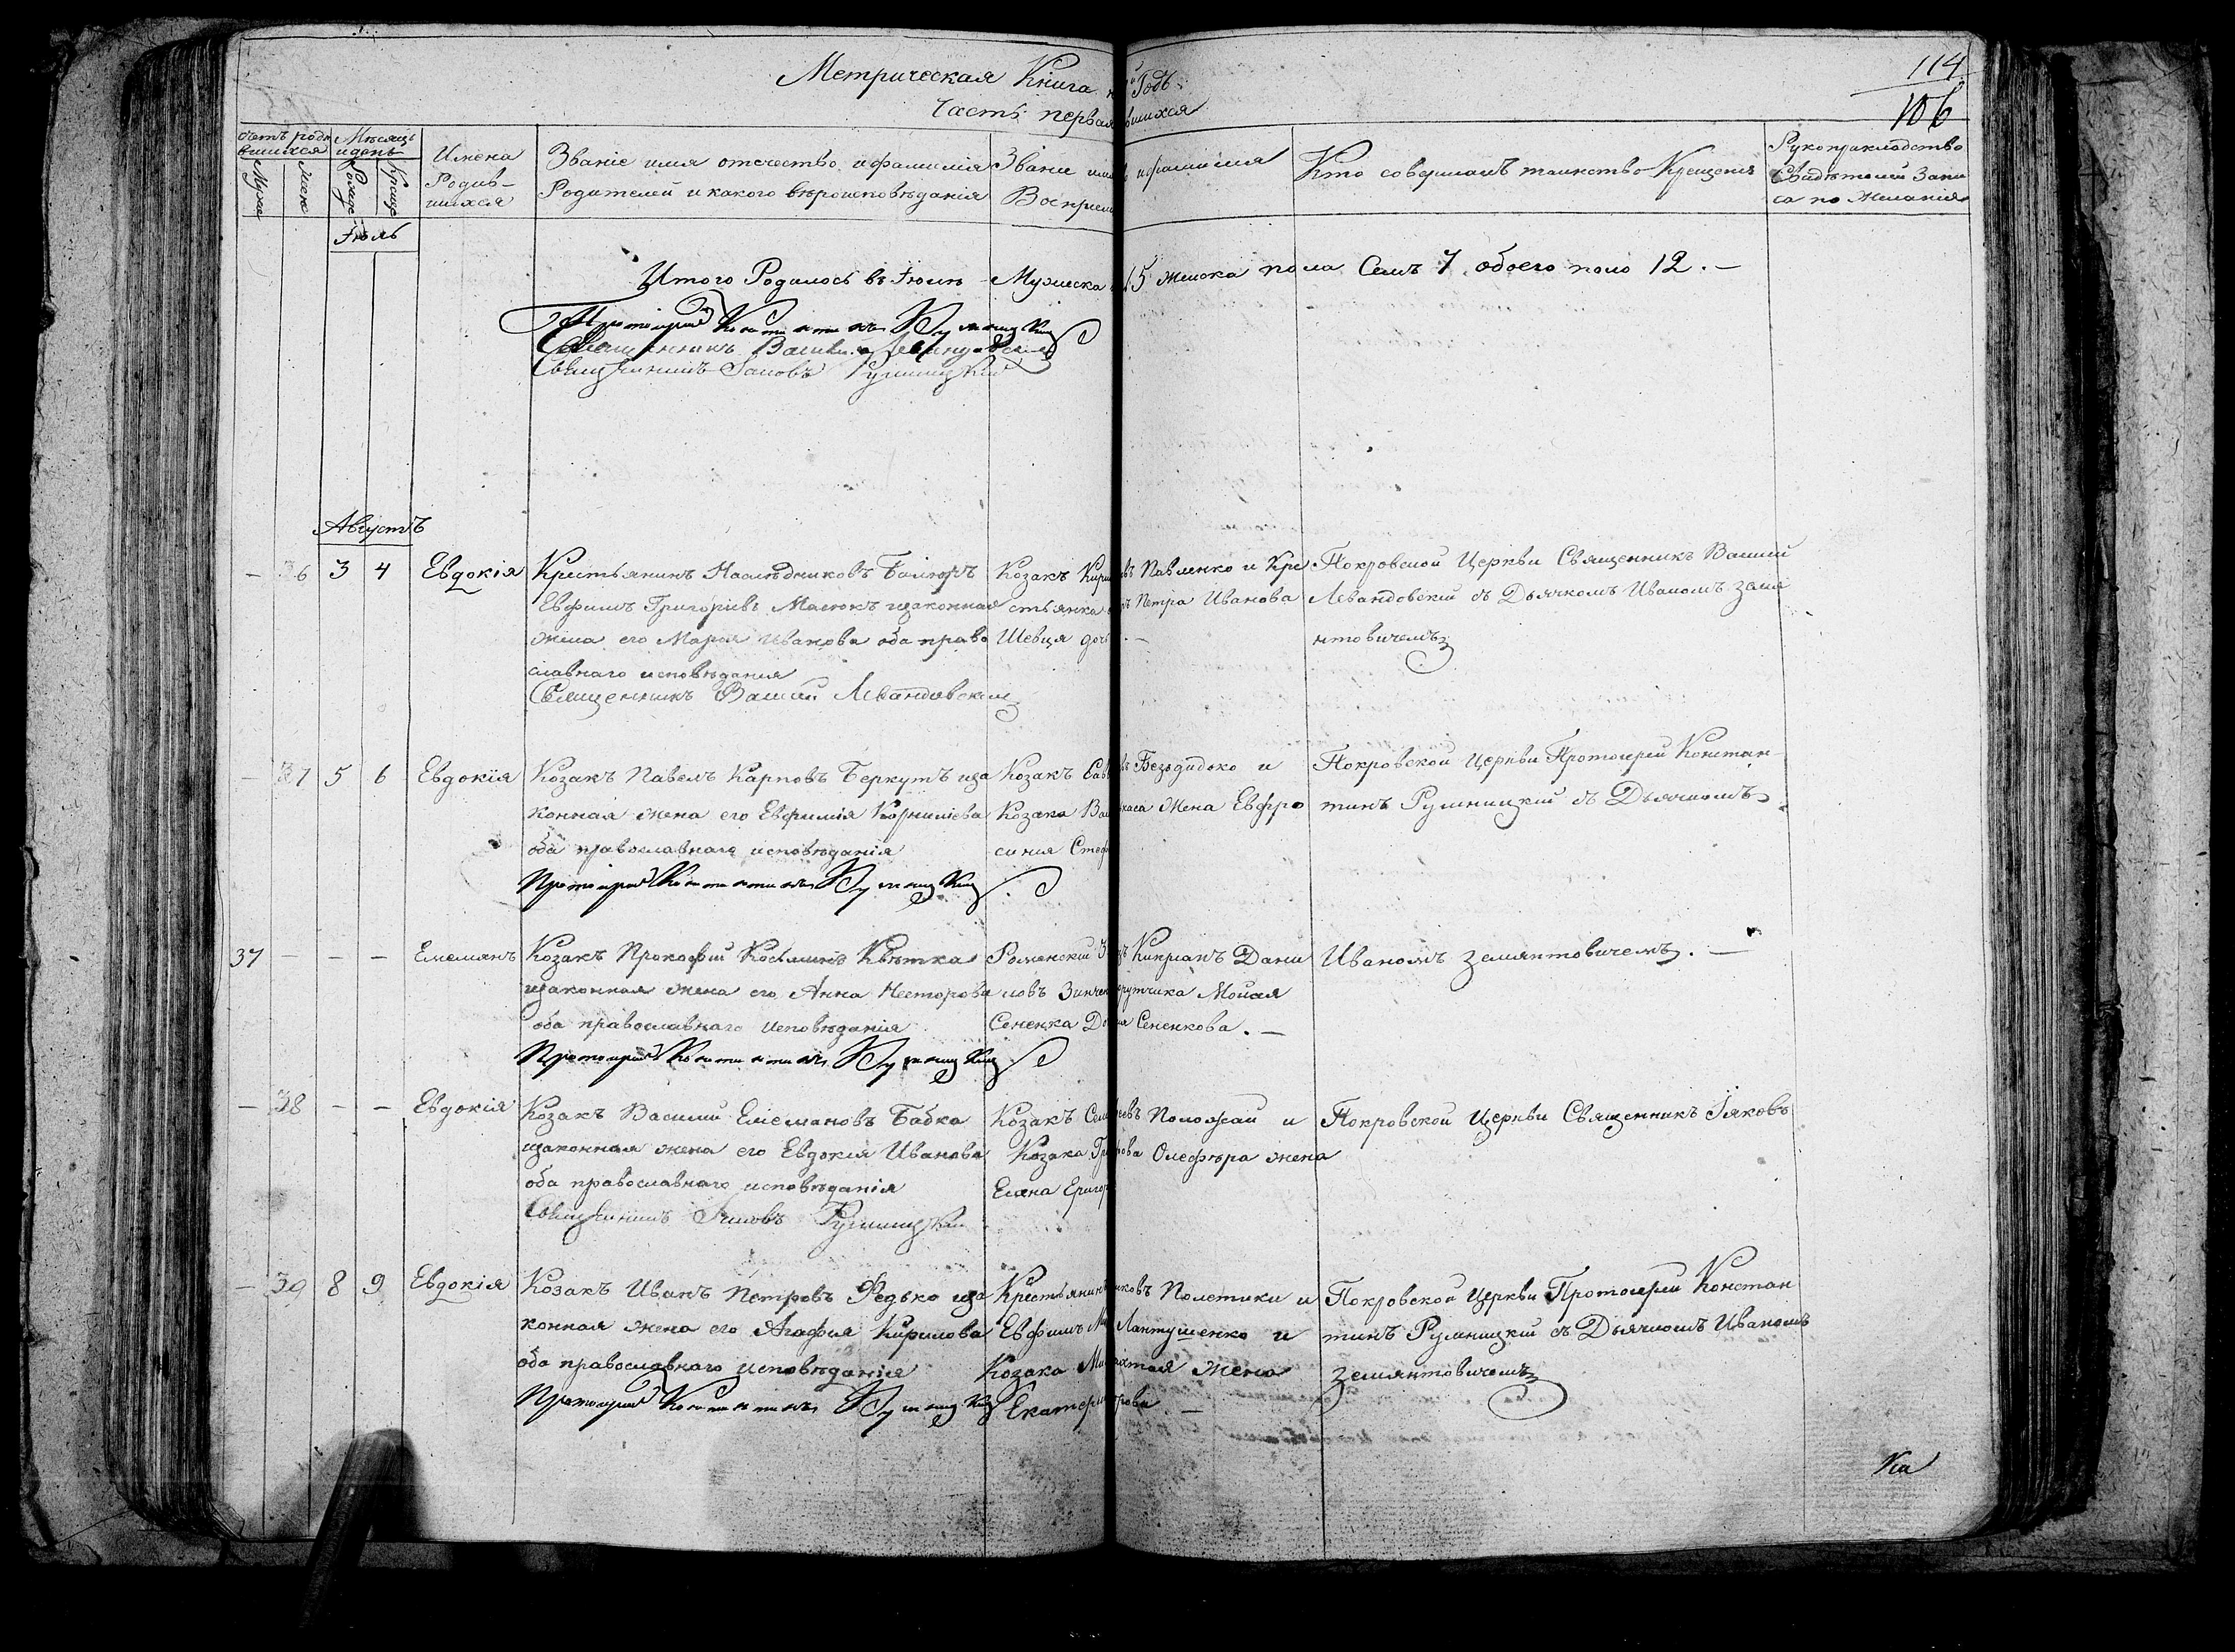 114
106
Метрическая Книга на Годъ
Часть первая вшихся
счетъ роди
вшихся
Муже
Жен
Мѣсяцъ
и день
Рожде
Креще
Имена
Родив-
шихся
Званіе имя отечество и фамилія
Родителей и какого вѣроисповѣданія
Звание имя и фамилия
Восприем
Кто совершалъ таинство Крещенія
Рукоприкладство
Свидѣтелей запи
са по желанія
Іюль
Итого Родилось въ Іюлѣ Мужеска 5 женска пола Семъ 7 обоего поло 12. —
Протоіерей Константинъ Румницкій
Священникъ Василий Левандовский
Священникъ Іаковъ Румницкій
Августъ
— 36 3 4 Евдокія
Крестьянинъ Наслѣдниковъ
Евфимъ Григоріевъ Малюкъ изаконная
жена его Марія Иванова оба право
славнаго исповѣданія
Священникъ Василий Левандовский
Козакъ Кири въ Павленко и Кре
стьянка Петра Иванова
Шевця доч —
Покровской Церкви Священникъ Василий
Левандовский съ Дьячкомъ Иваномъ Земя
нтовичемъ
— 37 5 6 Евдокія
Козакъ Павелъ Карповъ Беркутъ иза
конная жена его Евфимія Корнилиева
оба православнаго исповѣданія
Протоіерей Константинъ Румницкій
Козакъ Савв въ Безъдидоко и
Козака Ва хаса Жена Евфро
синия Стеф
Покровской Церкви Протоиерей Констан
тинъ Румницкий съ Дьячкомъ
37 — — — Емелиянъ
Козакъ Прокофий Косминъ Квѣтка
изаконная жена его Анна Несторова
оба православнаго исповѣданія
Протоіерей Константинъ Румницкій
Роменский Киприанъ Дани
ловъ Зинчен рутчика Мойсея
Сененка До Сененкова. —
Иваномъ Земянтовичемъ. —
— 38 — — Евдокія
Козакъ Василий Емемановъ Бабка
изаконная жена его Евдокия Иванова
оба православнаго исповѣданія
Священникъ Іаковъ Румницкій
Козакъ Сем евъ Положай и
Козака Гр рова Олефѣра жена
Елена Григор
Покровской Церкви Священникъ Іяковъ
— 39 8 9 Евдокія
Козакъ Иванъ Петровъ Федько иза
конная жена его Агафия Кирилова
оба православнаго исповѣданія
Протоіерей Константинъ Румницкій
Крестьянинъ иковъ Полетики и
Евфимъ Лантушенко и
Козака Ми хтая жена
Екатери трова —
Покровской Церкви Протоиерей Констан
тинъ Румницкий съ Дьячкомъ Иваномъ
Земянтовичемъ